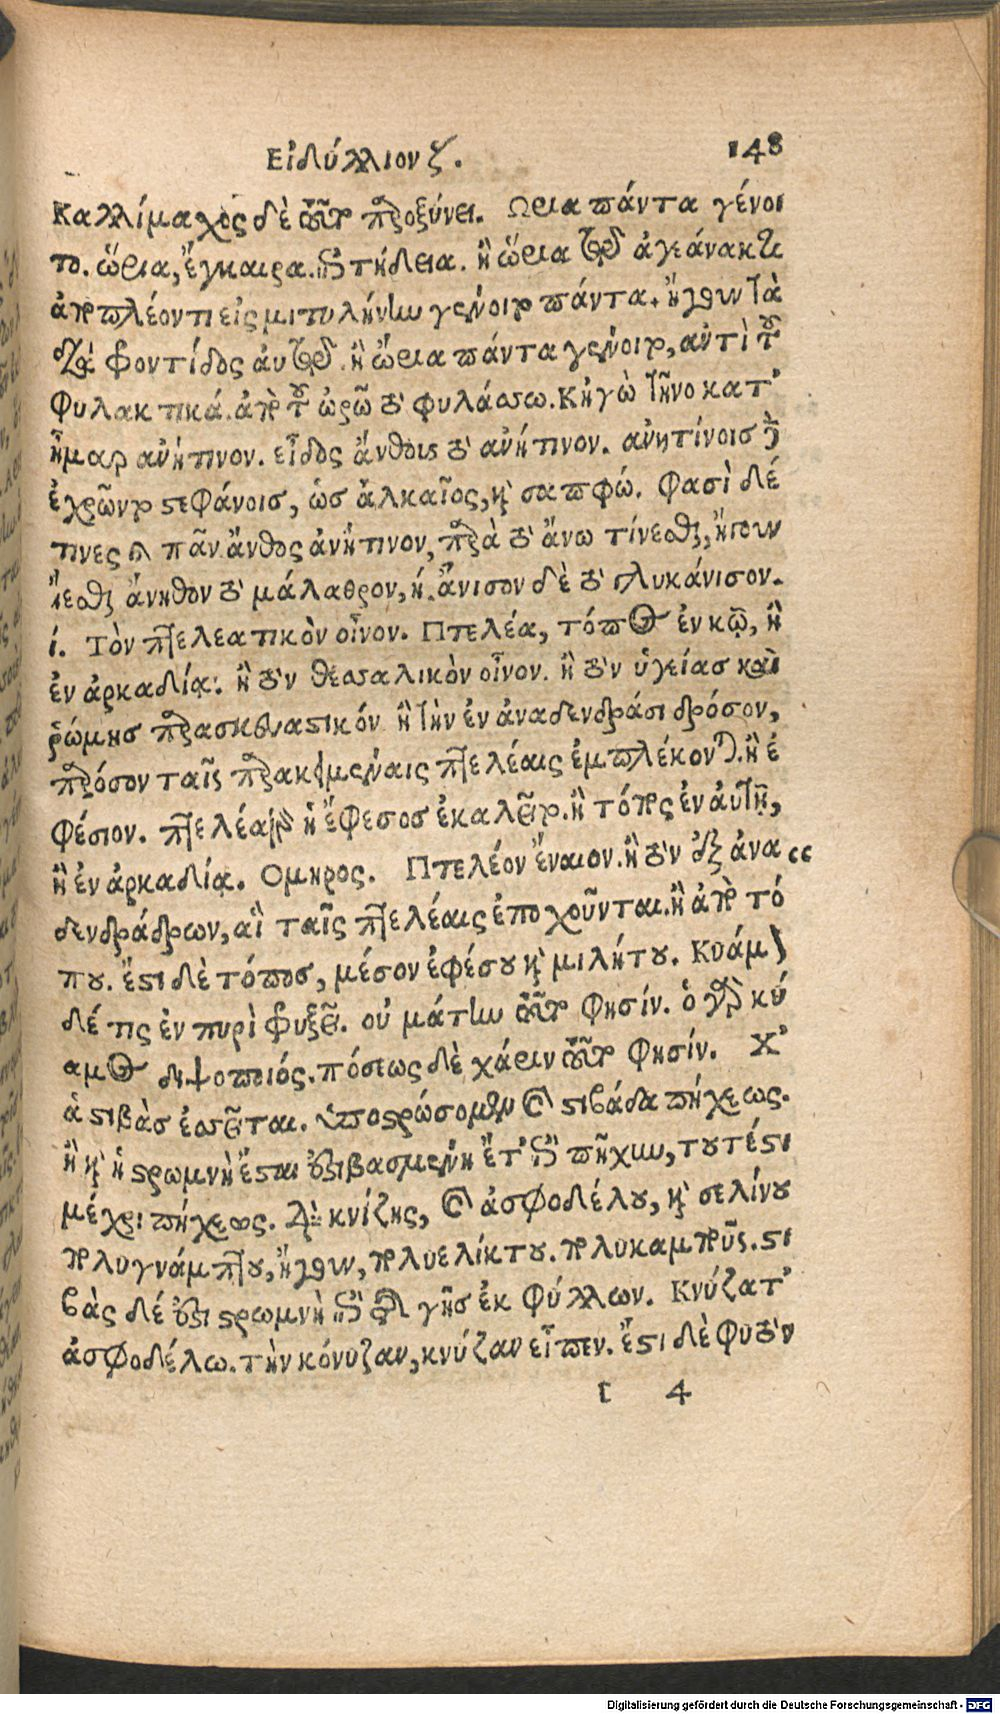 Εἰδύλλιον ζ. 148
Καλλίμαχος δὲ αὐτὸ παροξύνει. Ωρια πάντα γένοι
το. ὥρια, ἔγκαιρα. ἐπιτήδεια. ἢ ὥρια τῷ ἀγεάνακτι
ἀπὸ πλέοντι εἰς μιτυλήνην γένοιτο πάντα. ἤγουν τὰ
διὰ φροντίδος αὐτῷ. ἢ ὥρια πάντα γένοιτο, ἀντὶ τοῦ
φυλακτικά. ἀπὸ τοῦ ὠρῶ τὸ φυλάσσω. Κἠγὼ τῆνο κατ’
ἦμαρ ἀνήτινον. εἶδος ἄνθους τὸ ἀνήτινον. ἀνητίνοις γὰρ
ἐχρῶντο στεφάνοις, ὡς ἀλκαῖος, καὶ σαπφώ. φασὶ δέ
τινες ὅτι πᾶν ἄνθος ἀνήτινον, παρὰ τὸ ἄνω τίνεσθαι, ἤτουν
ἵεσθαι ἄνηθον τὸ μάλαθρον, ἠ. ἄνισον δὲ τὸ γλυκάνισον.
ί. Τὸν πτελεατικὸν οἶνον. Πτελέα, τόπος ἐν κῷ, ἢ
ἐν ἀρκαδίᾳ. ἢ τὸν θεσσαλικὸν οἶνον. ἢ τὸν ὑγείας καὶ
ῥώμης παρασκευαστικόν ἢ τὴν ἐν ἀναδενδράσι δρόσον,
παρόσον ταῖς παρακειμέναις πτελέαις ἐμπλέκονται. ἢ ἐ
φέσιον. πτελέα γὰρ ἡ ἔφεσος ἐκαλεῖτο. ἢ τόπος ἐν αὐτῇ,
ἢ ἐν ἀρκαδίᾳ. Ομηρος. Πτελέον ἔναιον. ἢ τὸν ἐξ ἀνα
δενδράδρων, αἳ ταῖς πτελέαις ἐποχοῦνται. ἢ ἀπὸ τό
που. ἔστι δὲ τόπος, μέσον ἐφέσου καὶ μιλήτου. Κυάμον
δέ τις ἐν πυρὶ φρυξεῖ. οὐ μάτην αὐτὸ φησίν. ὁ γὰρ κύ
αμος διψοποιός. πόσεως δὲ χάριν αὐτὸ φησίν. Χ’
ἁ στιβὰς ἐσσεῖται. ὑποστρώσομεν τὴν στιβάδα πήχεως.
ἢ καὶ ἡ στρωμνὴ ἔσται ἐστιβασμένη ἔτ’ ἐπὶ πῆχυν, τουτέστι
μέχρι πήχεως. διὰ κνίζης, τὲ ἀσφοδέλου, καὶ σελίνου
πολυγνάμπτου, ἤγουν, πολυελίκτου. πολυκαμποῦς. στι
βὰς δέ ἐστι στρωμνὴ ἐπὶ τῆς γῆς ἐκ φύλλων. Κνύζατ’
ἀσφοδέλω. τὴν κόνυζαν, κνύζαν εἶπεν. ἔστι δὲ φυτὸν
τ 4